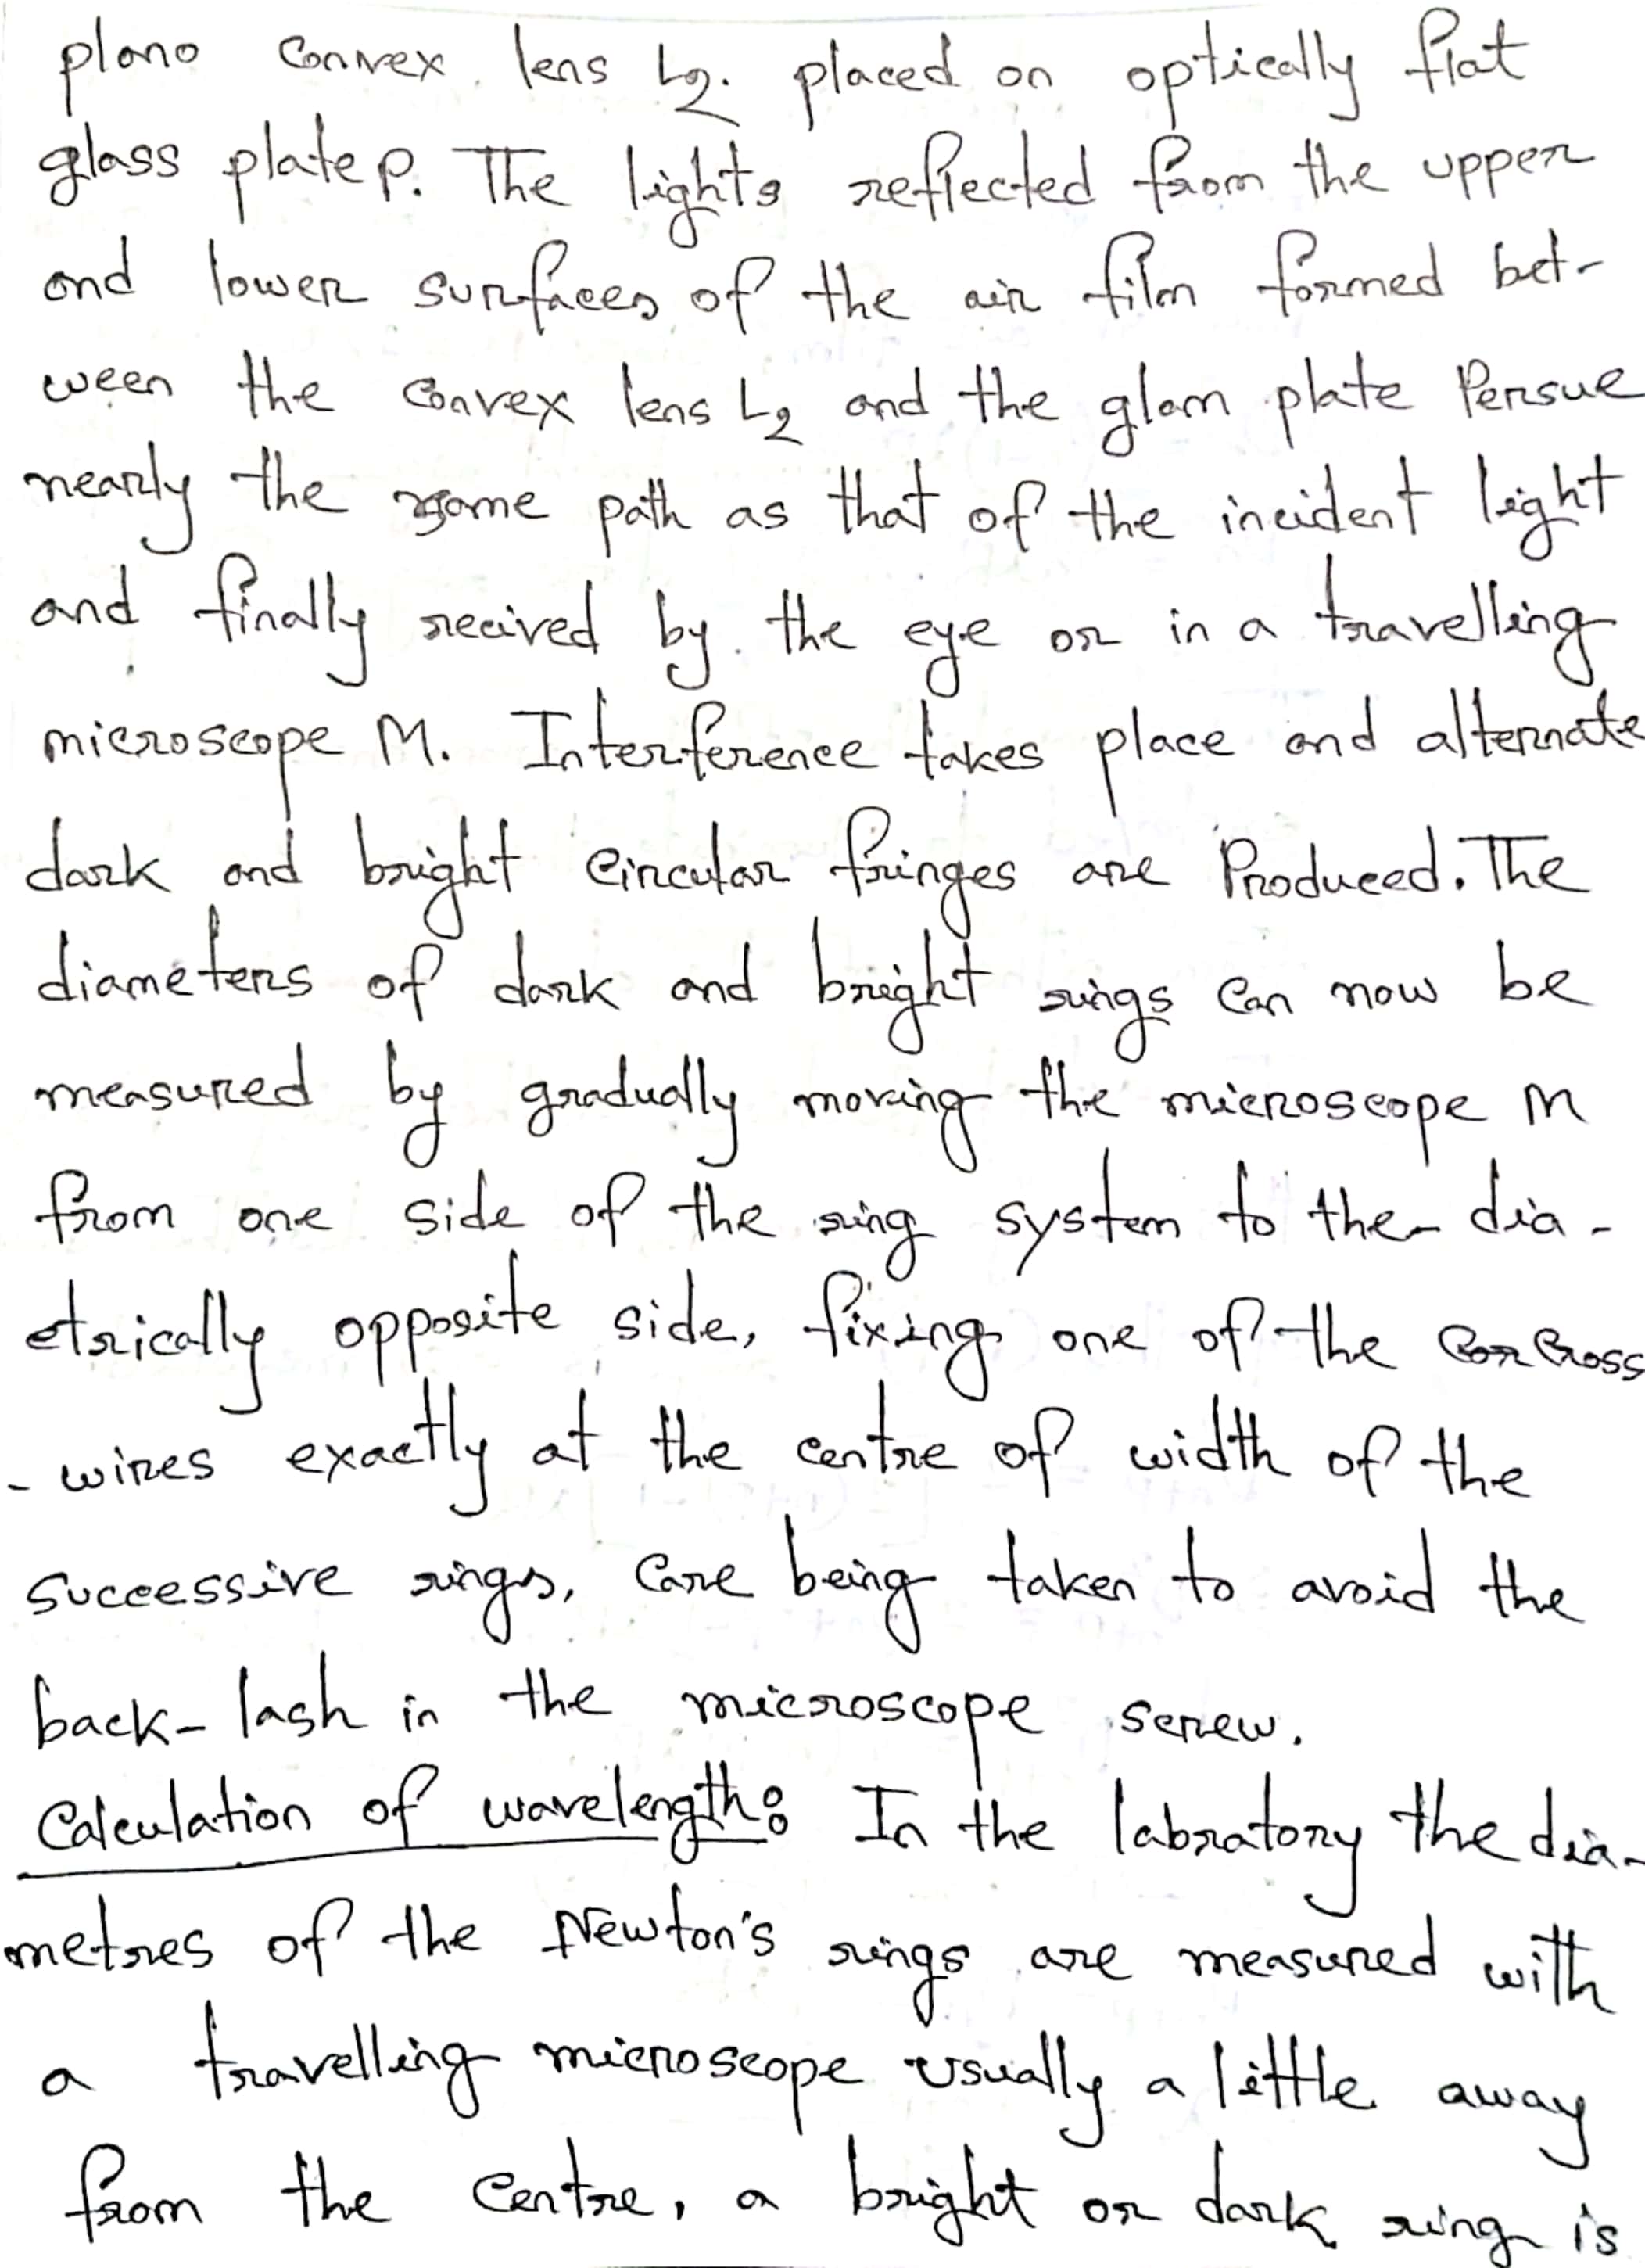 plano convex lens L2. placed on optically flat
glass plate P. The lights reflected from the upper
and lower surfaces of the air film formed bet-
ween the convex lens L2 and the glam plate Persue
nearly the same path as that of the incident light
and finally recived by the eye or in a travelling
microscope M. Interference takes place and alternate
dark and bright circular fringes are Produced. The
diameters of dark and bright rings can now be
measured by gradually moving the microscope M
from one side of the ring system to the- dia-
etrically opposite side, fixing one of the Cross
- wires exactly at the centre of width of the
successive rings, Care being taken to avoid the
back-lash in the microscope screw.
Calculation of wavelength: In the labratory the dia-
metres of the Newton's rings are measured with
a travelling microscope usually a little away
from the centre, a bright or dark ring is